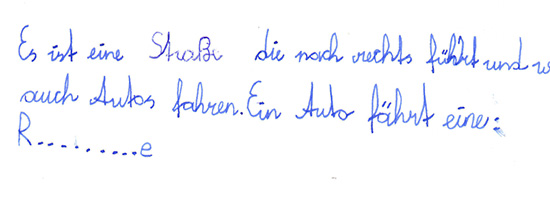 Es ist eine Straße die nach rechts führt und w
auch Autos fahren. Ein Auto fährt eine:
R..........e